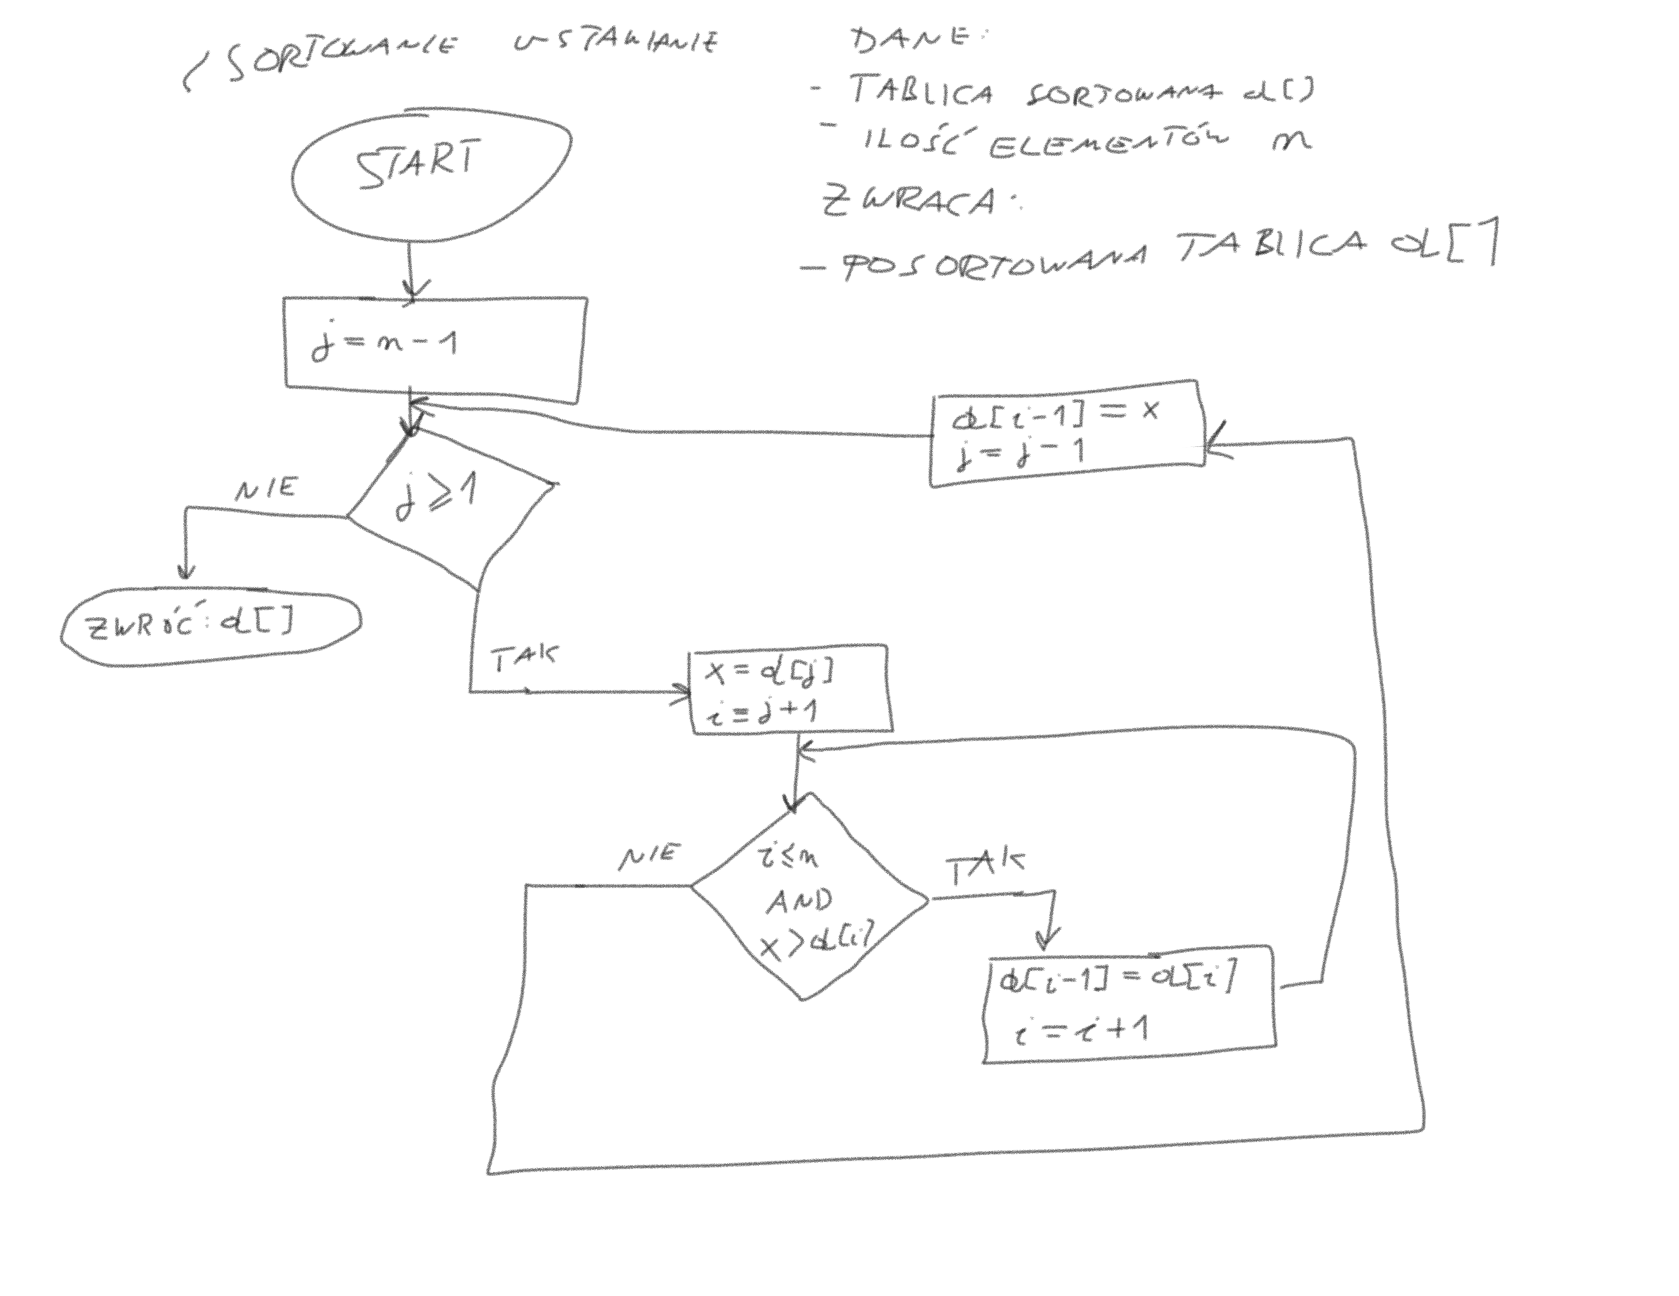 SORTOWANIE WSTAWIANIE
DANE:
- TABLICA SORTOWANA d[]
- ILOŚĆ ELEMENTÓW n
ZWRACA:
- POSORTOWANA TABLICA d[]
START
j = n - 1
d[i-1] = x
j = j - 1
j ≥ 1
NIE
ZWRÓĆ: d[]
TAK
x = d[j]
i = j + 1
NIE
i ≤ n
AND
x > d[i]
TAK
d[i-1] = d[i]
i = i + 1